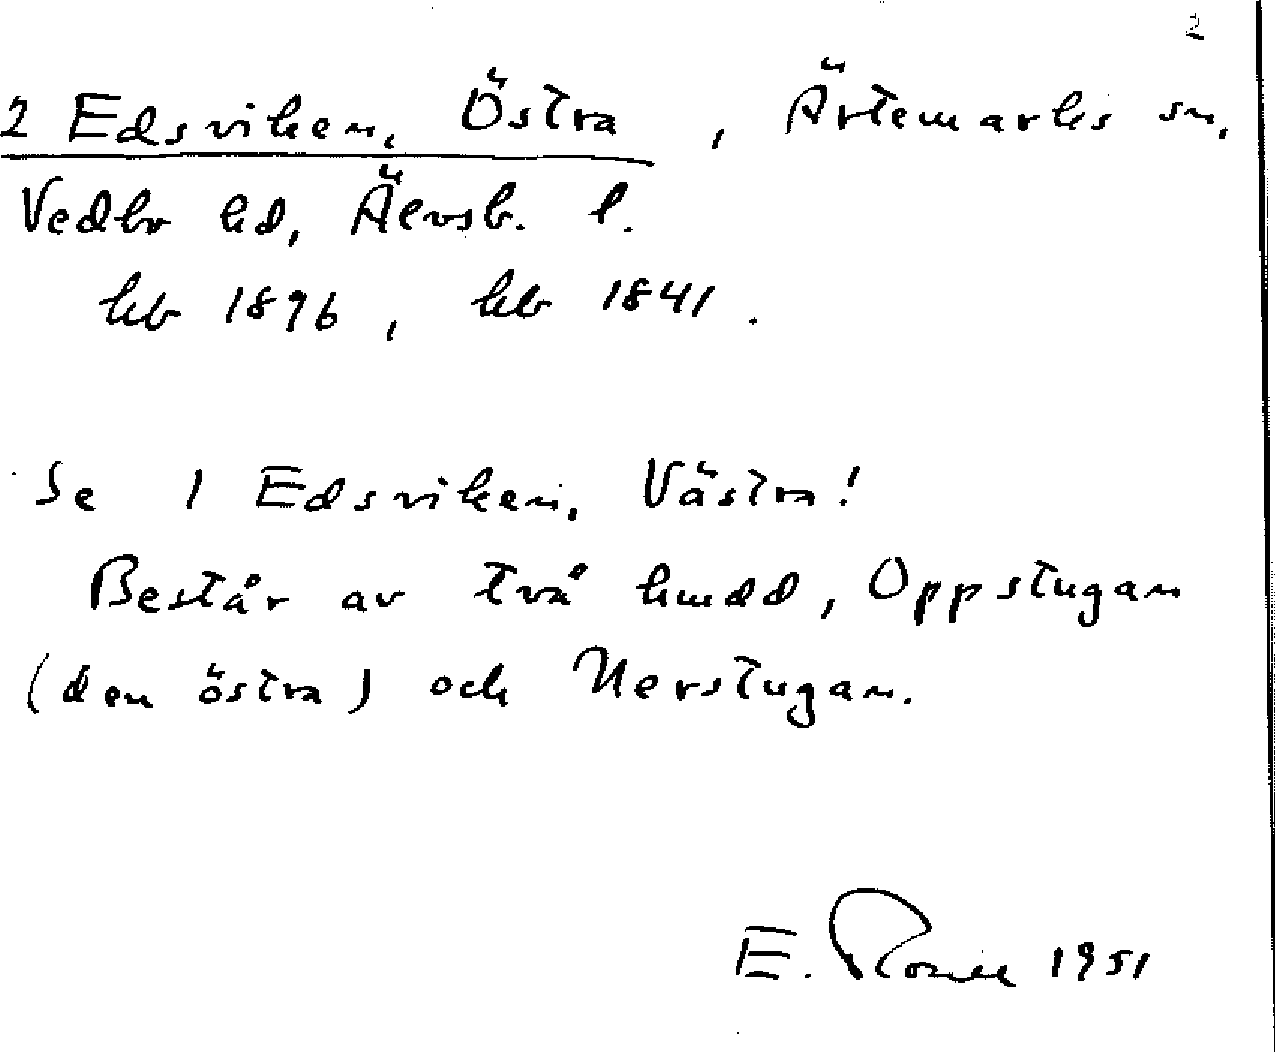 2
2 Edsviken, Östra, Ärtemarks sn,
Vedbo hd, Älvsb. l.
kb 1896, kb 1841.
Se 1 Edsviken, Västra!
Består av två hmdd, Oppstugan
(den östra) och Nerstugan.
E. 1951